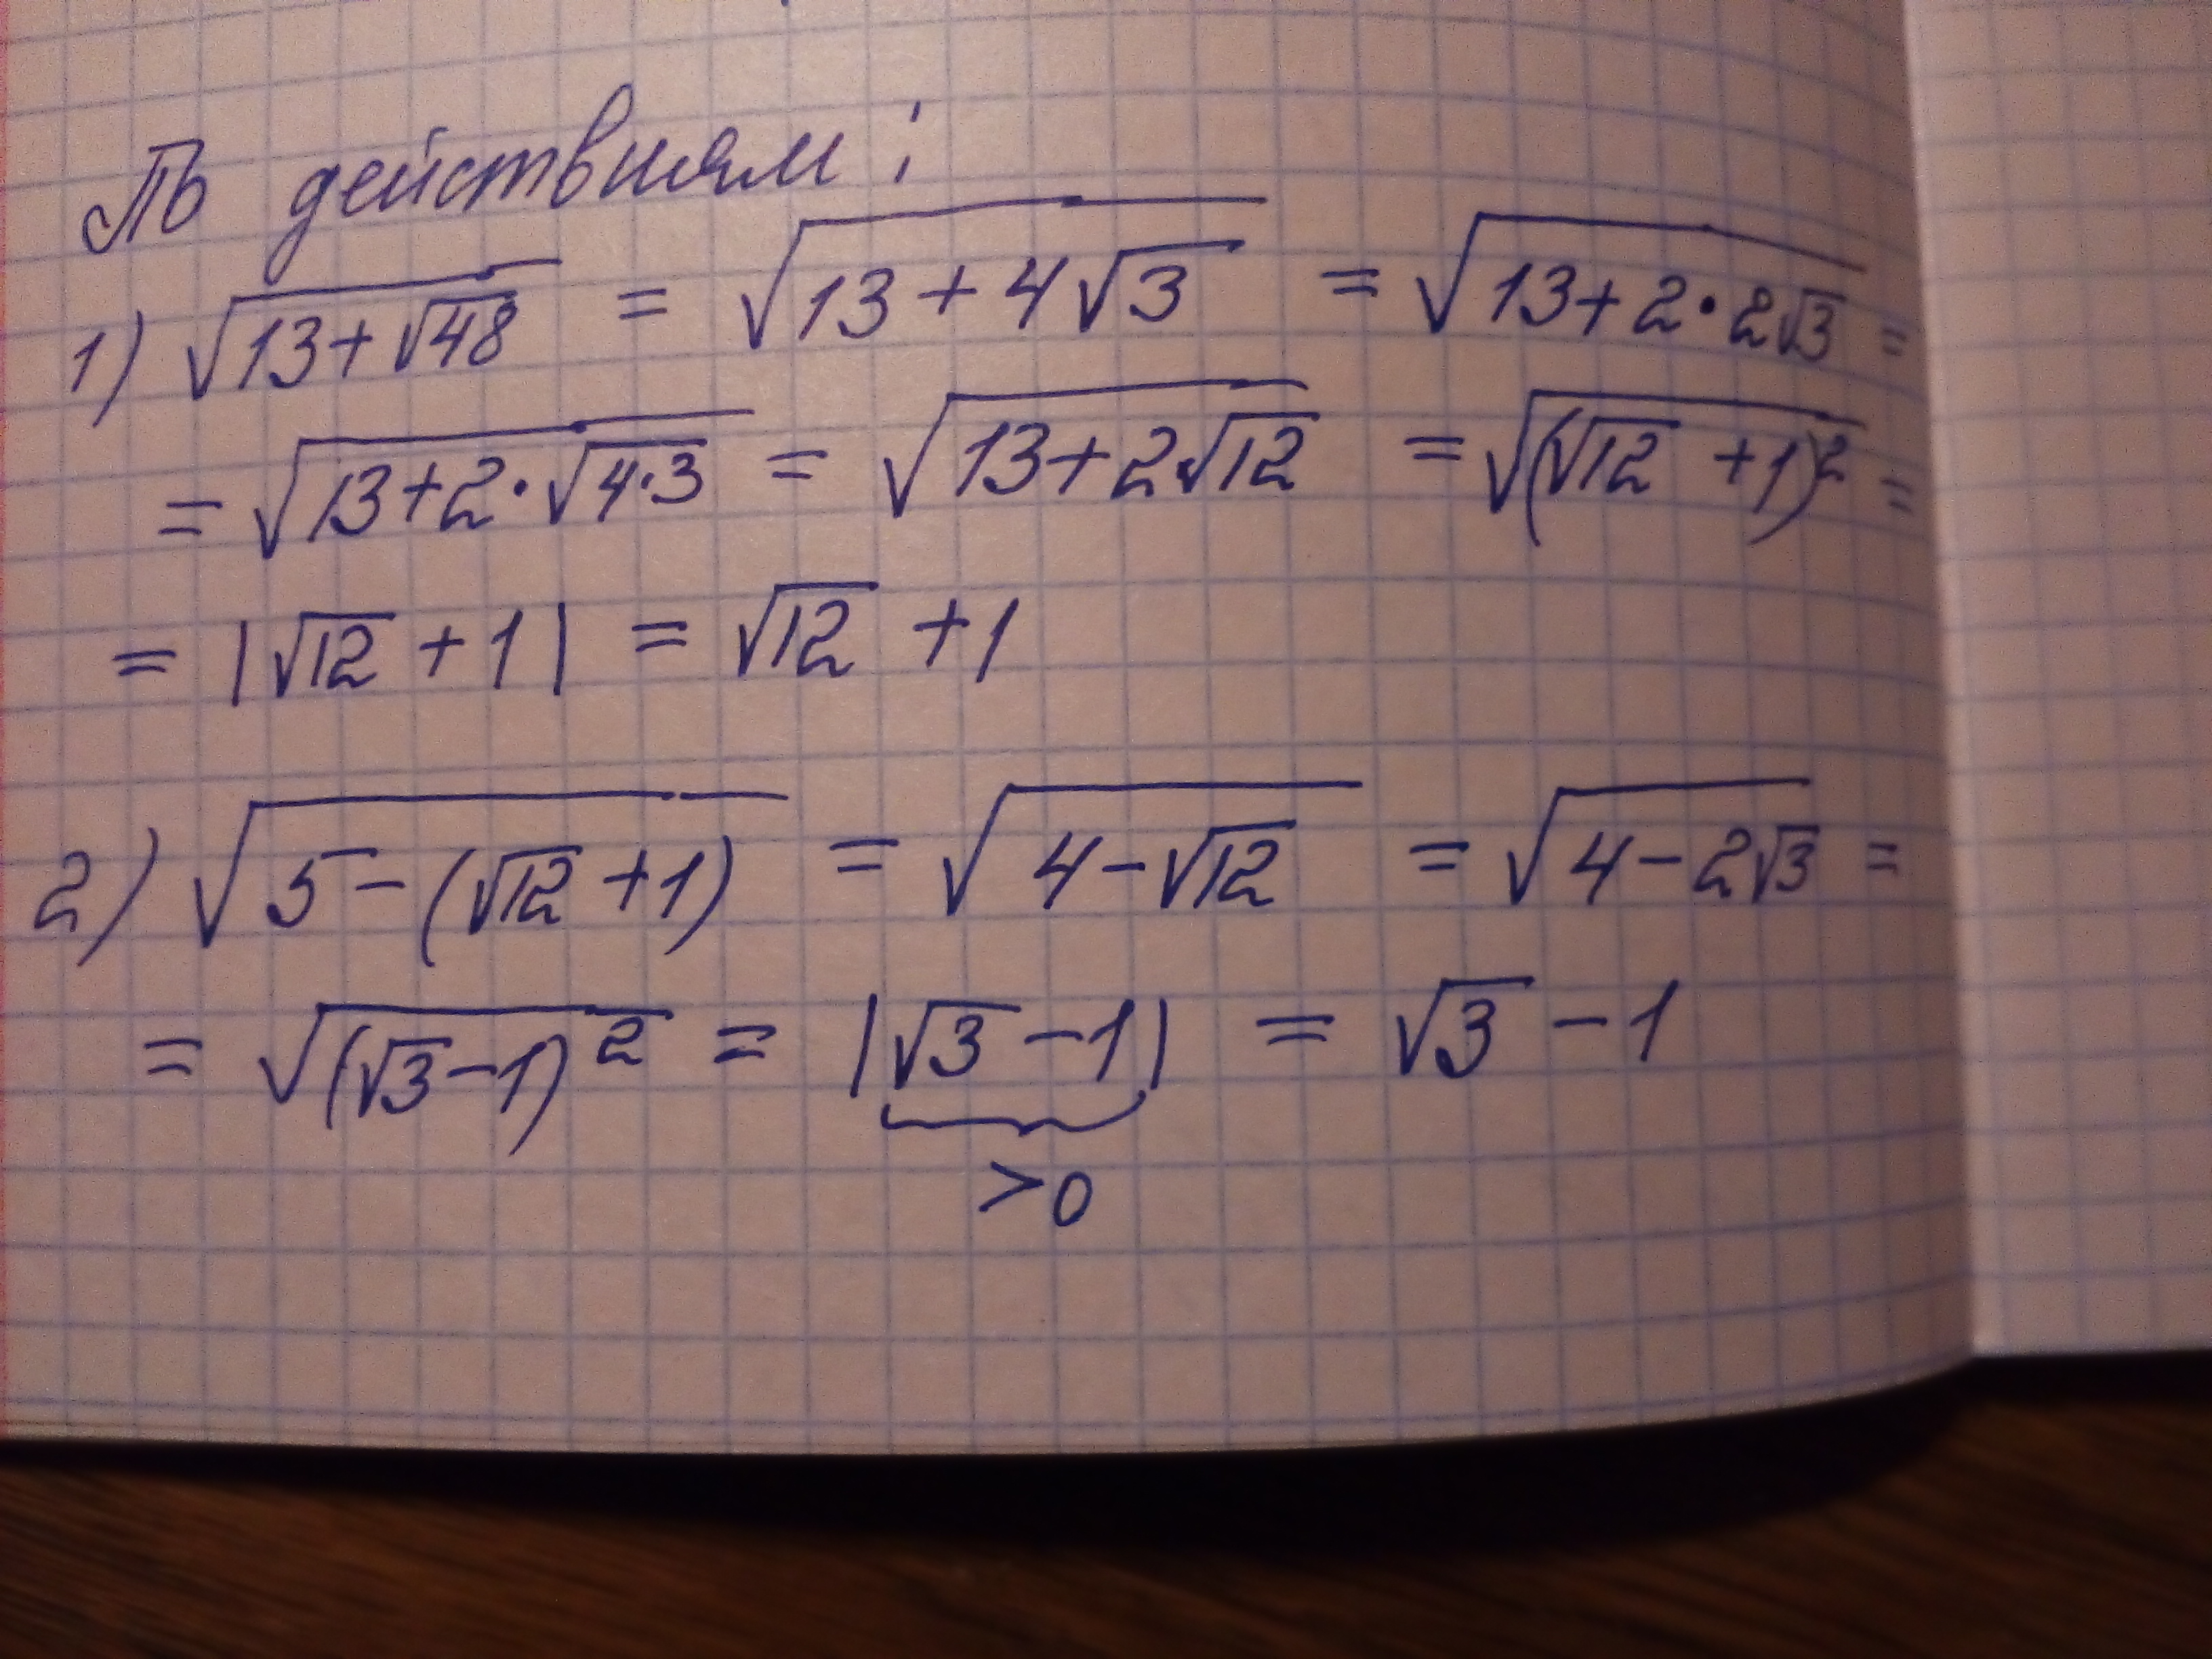 По действиям:
1) √(13+√48) = √(13+4√3) = √(13+2·2√3) =
= √(13+2·√(4·3)) = √(13+2√12) = √((√12+1)²) =
= |√12+1| = √12+1
2) √(5-(√12+1)) = √(4-√12) = √(4-2√3) =
= √((√3-1)²) = |√3-1| = √3-1
>0